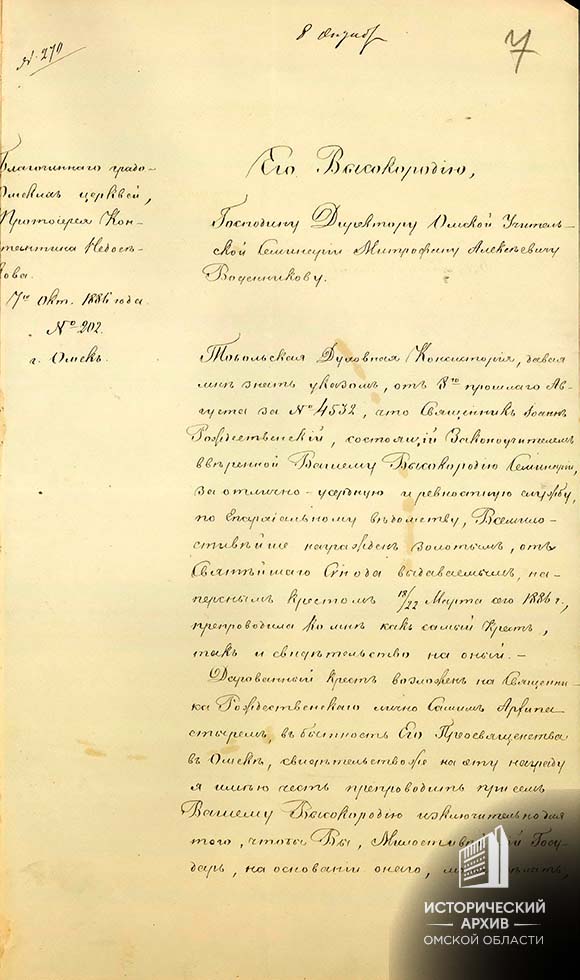 8 Октяб
7
№ 270
Благочиннаго градо-
Омскихъ церквей,
Протоіерея Кон-
стантина Недосѣ-
кова.
7го Окт. 1886 года.
№ 202.
г. Омскъ.
Его Высокородію,
Господину Директору Омской Учитель-
ской Семинаріи Митрофану Алексѣевичу
Водянникову.
Тобольская Духовная Консисторія, давая
мнѣ знать указомъ, отъ 8го прошлаго Ав-
густа за № 4532, что Священникъ Іоаннъ
Рождественскій, состоящій Законоучителемъ
ввѣренной Вашему Высокородію Семинаріи,
за отлично-усердную и ревностную службу,
по Епархіальному вѣдомству, Всемило-
стивѣйше награжденъ золотымъ, отъ
Святѣйшаго Сѵнода выдаваемымъ, на-
перснымъ крестомъ 18/22 Марта сего 1886 г.,
препроводила ко мнѣ какъ самый крестъ,
такъ и свидѣтельство на оный. -
Дарованный крестъ возложенъ на Священни-
ка Рождественскаго лично Самимъ Архипа-
стыремъ, въ бытность Его Преосвященства
въ Омскѣ, свидѣтельство же на эту награду
я имѣю честь препроводить при семъ
Вашему Высокородію исключительно для
того, чтобы Вы, Милостивѣйшій Госу-
дарь, на основаніи онаго,
ИСТОРИЧЕСКИЙ
АРХИВ
ОМСКОЙ ОБЛАСТИ